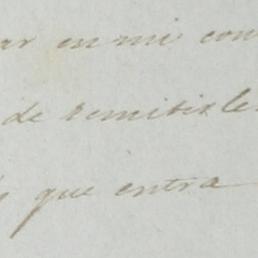 ar en mi con
de remitirle
que entra